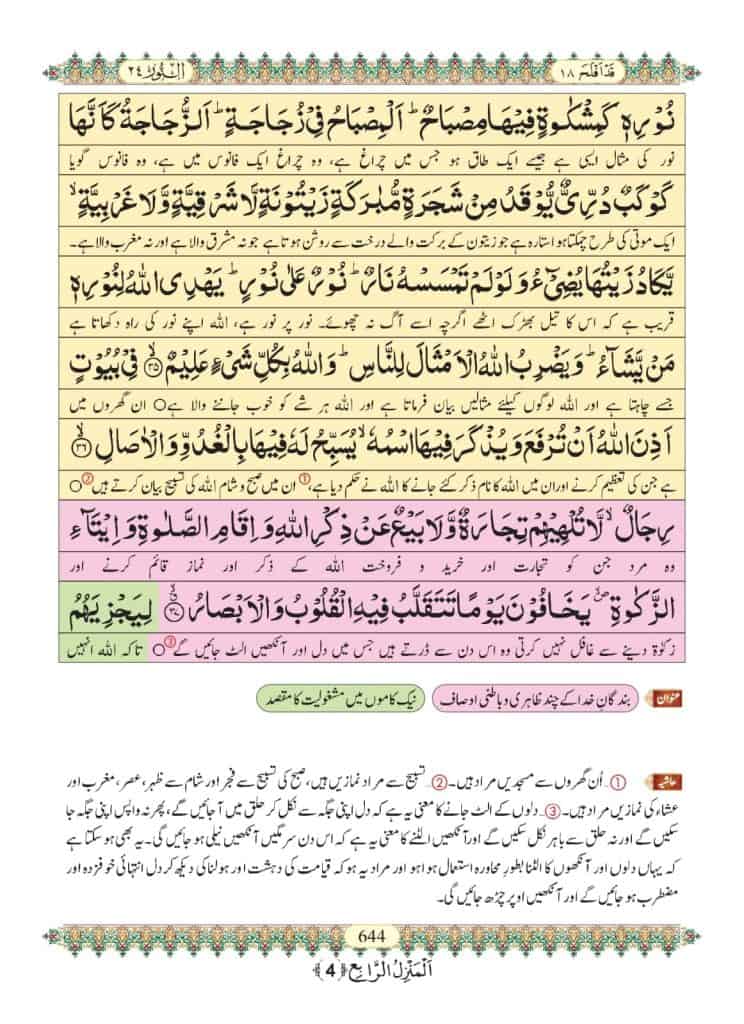 قَدۡ اَفۡلَحَ ١٨
اَلنُّوۡر ٢٤
نُوۡرِهٖ كَمِشۡكٰوةٍ فِيۡهَا مِصۡبَاحٌ ؕ اَلۡمِصۡبَاحُ فِىۡ زُجَاجَةٍ ؕ اَلزُّجَاجَةُ كَاَنَّهَا
نور کی مثال ایسی ہے جیسے ایک طاق ہو جس میں چراغ ہے، وہ چراغ ایک فانوس میں ہے، وہ فانوس گویا
كَوۡكَبٌ دُرِّىٌّ يُّوۡقَدُ مِنۡ شَجَرَةٍ مُّبٰرَكَةٍ زَيۡتُوۡنَةٍ لَّا شَرۡقِيَّةٍ وَّلَا غَرۡبِيَّةٍ ۙ
ایک موتی کی طرح چمکتا ہوا ستارہ ہے جو زیتون کے برکت والے درخت سے روشن ہوتا ہے جو نہ مشرق والا ہے اور نہ مغرب والا ہے۔
يَّكَادُ زَيۡتُهَا يُضِىۡٓءُ وَلَوۡ لَمۡ تَمۡسَسۡهُ نَارٌ ؕ نُوۡرٌ عَلٰى نُوۡرٍ ؕ يَهۡدِى اللّٰهُ لِنُوۡرِهٖ
قریب ہے کہ اس کا تیل بھڑک اٹھے اگرچہ اسے آگ نہ چھوئے۔ نور پر نور ہے، اللہ اپنے نور کی راہ دکھاتا ہے
مَنۡ يَّشَآءُ ؕ وَيَضۡرِبُ اللّٰهُ الۡاَمۡثَالَ لِلنَّاسِ ؕ وَاللّٰهُ بِكُلِّ شَىۡءٍ عَلِيۡمٌ ۙ﴿٣٥﴾ فِىۡ بُيُوۡتٍ
جسے چاہتا ہے اور اللہ لوگوں کیلئے مثالیں بیان فرماتا ہے اور اللہ ہر شے کو خوب جاننے والا ہے ○ ان گھروں میں
اَذِنَ اللّٰهُ اَنۡ تُرۡفَعَ وَيُذۡكَرَ فِيۡهَا اسۡمُهٗ ۙ يُسَبِّحُ لَهٗ فِيۡهَا بِالۡغُدُوِّ وَالۡاٰصَالِ ۙ﴿٣٦﴾
ہے جن کی تعظیم کرنے اور ان میں اللہ کا نام ذکر کئے جانے کا اللہ نے حکم دیا ہے، ① ان میں صبح و شام اللہ کی تسبیح بیان کرتے ہیں ② ○
رِجَالٌ ۙ لَّا تُلۡهِيۡهِمۡ تِجَارَةٌ وَّلَا بَيۡعٌ عَنۡ ذِكۡرِ اللّٰهِ وَاِقَامِ الصَّلٰوةِ وَاِيۡتَآءِ
وہ مرد جن کو تجارت اور خرید و فروخت اللہ کے ذکر اور نماز قائم کرنے اور
الزَّكٰوةِ ۪ۙ يَخَافُوۡنَ يَوۡمًا تَتَقَلَّبُ فِيۡهِ الۡقُلُوۡبُ وَالۡاَبۡصَارُ ۙ﴿٣٧﴾ لِيَجۡزِيَهُمُ
زکوٰۃ دینے سے غافل نہیں کرتی وہ اس دن سے ڈرتے ہیں جس میں دل اور آنکھیں الٹ جائیں گے ③ ○ تاکہ اللہ انہیں
عنوان بندگانِ خدا کے چند ظاہری و باطنی اوصاف نیک کاموں میں مشغولیت کا مقصد
حاشیہ ①...اُن گھروں سے مسجدیں مراد ہیں۔ ②...تسبیح سے مراد نمازیں ہیں، صبح کی تسبیح سے فجر اور شام سے ظہر، عصر، مغرب اور
عشاء کی نمازیں مراد ہیں۔ ③...دلوں کے الٹ جانے کا معنی یہ ہے کہ دل اپنی جگہ سے نکل کر حلق میں آجائیں گے، پھر نہ واپس اپنی جگہ جا
سکیں گے اور نہ حلق سے باہر نکل سکیں گے اور آنکھیں الٹنے کا معنی یہ ہے کہ اس دن سرمگیں آنکھیں نیلی ہو جائیں گی۔ یہ بھی ہو سکتا ہے
کہ یہاں دلوں اور آنکھوں کا الٹنا بطورِ محاورہ استعمال ہوا ہو اور مراد یہ ہو کہ قیامت کی دہشت اور ہولناکی دیکھ کر دل انتہائی خوفزدہ اور
مضطرب ہو جائیں گے اور آنکھیں اوپر چڑھ جائیں گی۔
644
اَلۡمَنۡزِلُ الرَّابِع ﴿4﴾